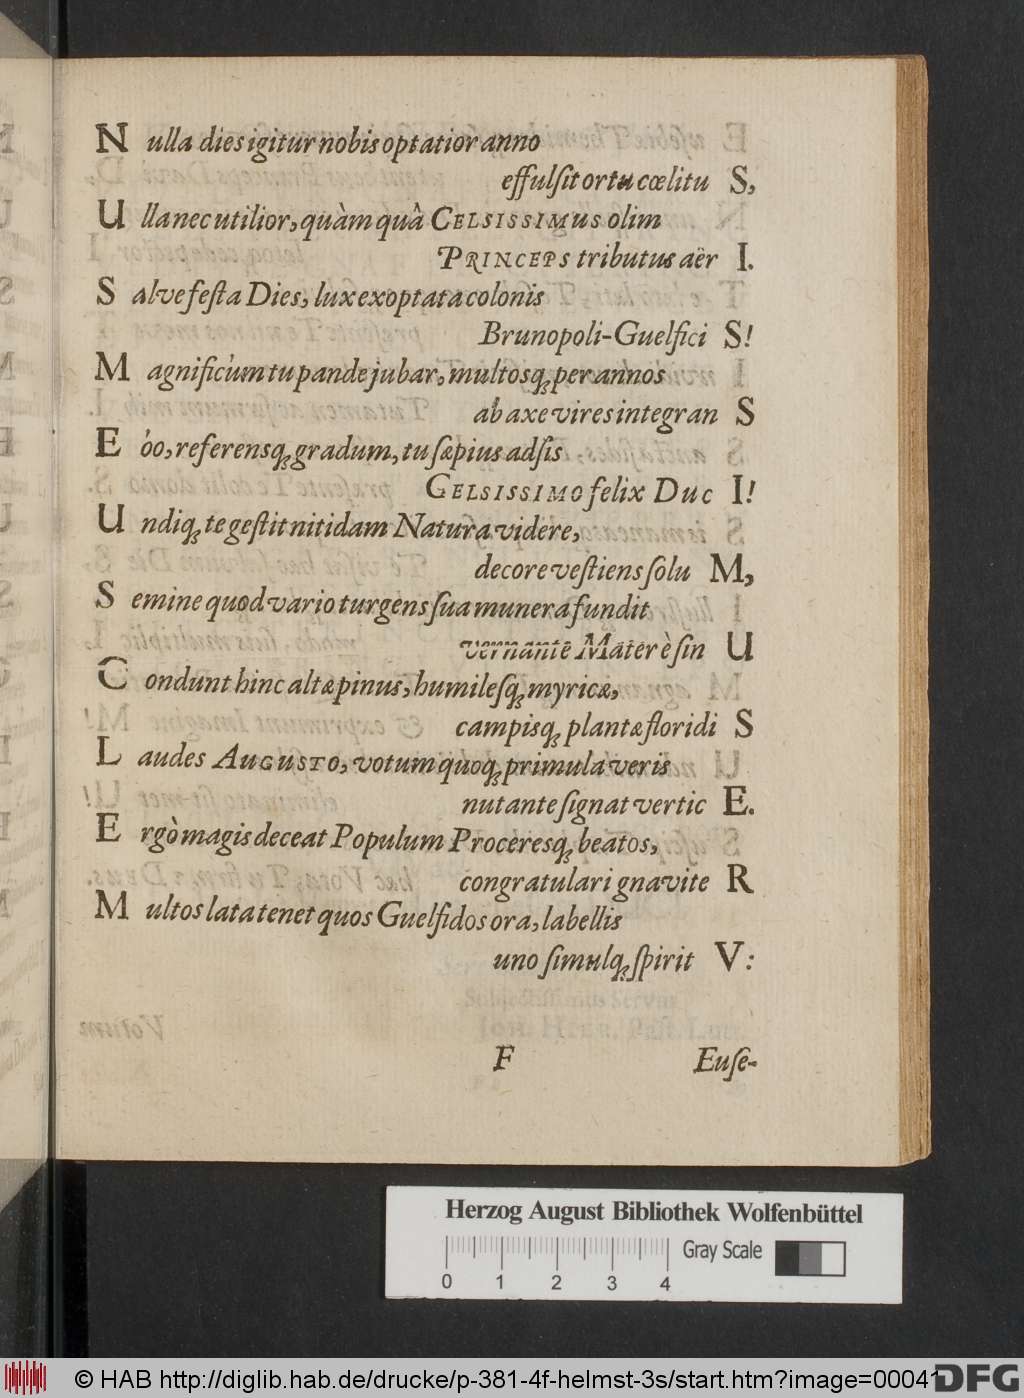 N ulla dies igitur nobis optatior anno
effulſit ortu cœlitu S,
U lla nec utilior, quàm quâ CELSISSIMUS olim
PRINCEPS tributus aër I.
S alve feſta Dies, lux exoptata colonis
Brunopoli-Guelfici S!
M agnificùm tu pande jubar, multosq; per annos
ab axe vires integran S
E òo, referensq; gradum, tu ſæpius adſis
CELSISSIMO felix Duc I!
U ndiq; te geſtit nitidam Natura videre,
decore veſtiens ſolu M,
S emine quod vario turgens ſua munera fundit
vernante Mater è ſin U
C ondunt hinc altæ pinus, humilesq; myricæ,
campisq; plantæ floridi S
L audes AUGUSTO, votum quoq; primula veris
nutante ſignat vertic E.
E rgò magis deceat Populum Proceresq; beatos,
congratulari gnavite R
M ultos lata tenet quos Guelfidos ora, labellis
uno ſimulq; ſpirit V:
F Euſe-
Herzog August Bibliothek Wolfenbüttel
0 1 2 3 4 Gray Scale
© HAB http://diglib.hab.de/drucke/p-381-4f-helmst-3s/start.htm?image=00041
DFG